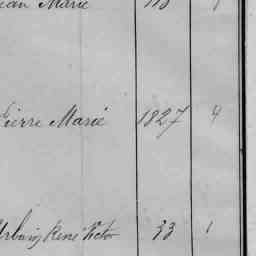 Jean Marie
Pierre Marie 1827 9
Urbain René Victor 33 1